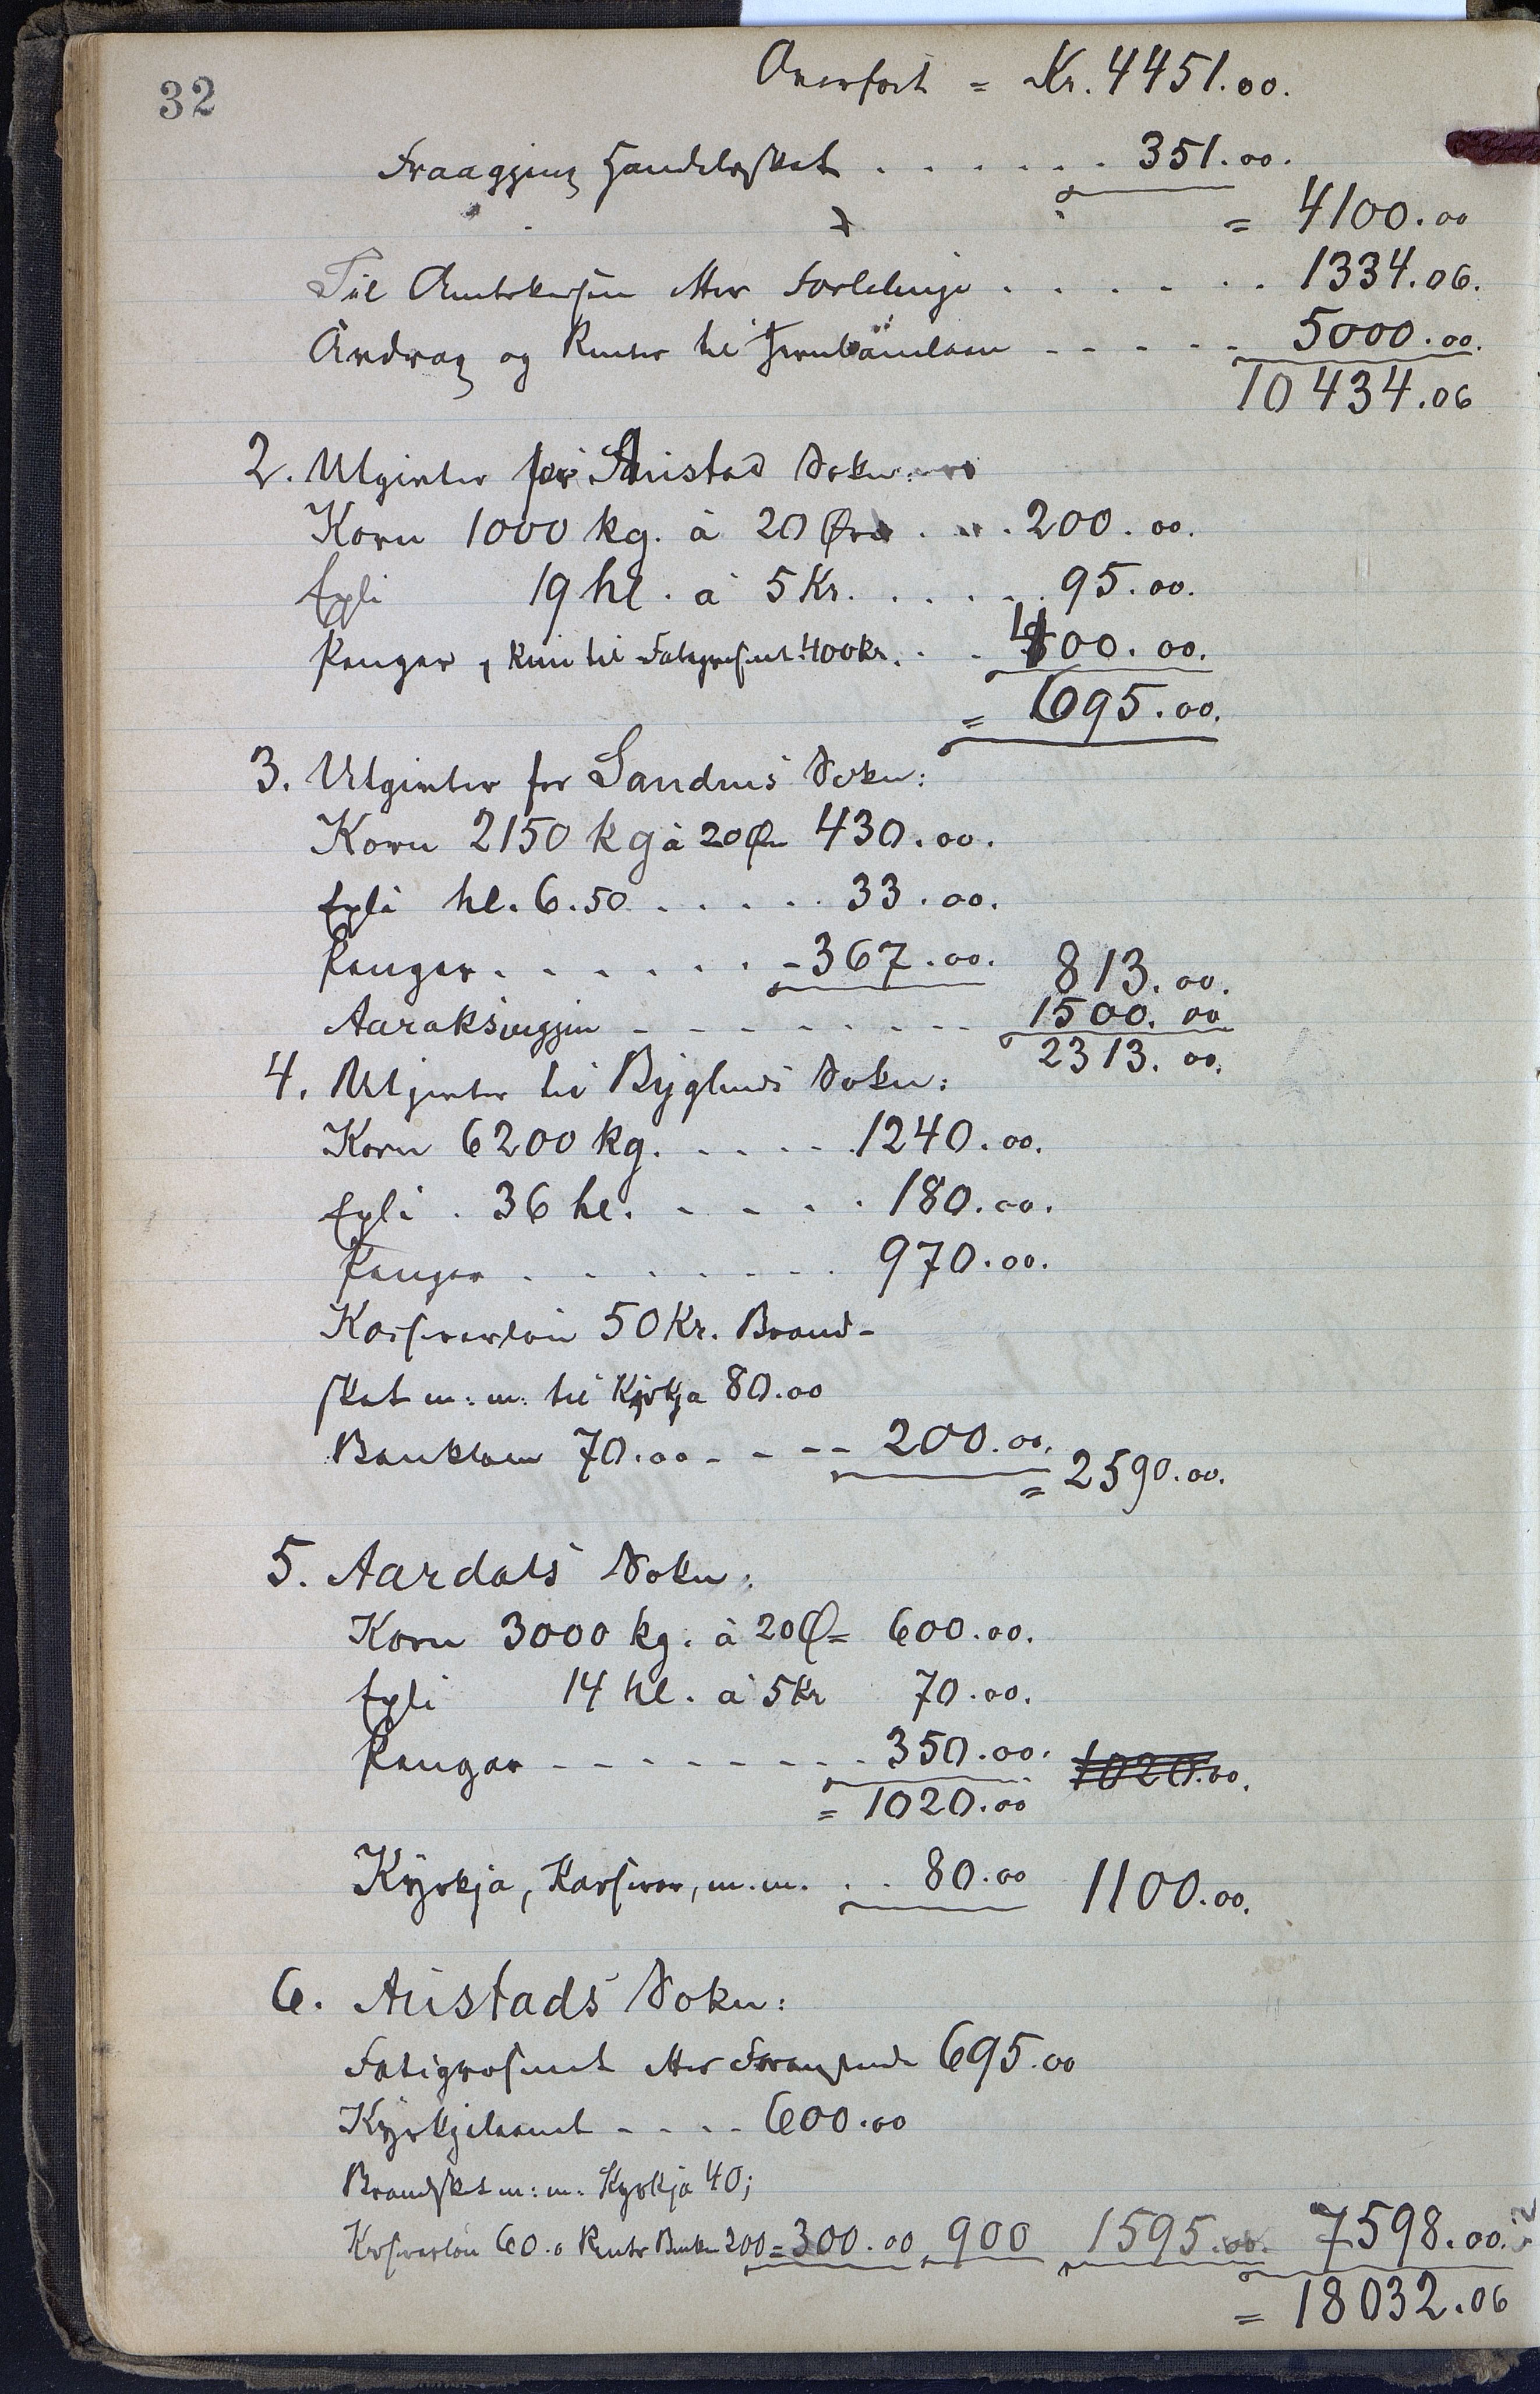 32
Overført = Kr. 4451.00.
Fraagjeng Handelsskat . . . . . . 351.00.
= 4100.00
Til Amtskassen etter Forlelinge . . . . . . 1334.06.
Avdrag og Renter til Jernbanelaan - - - - - 5000.00.
10434.06
2. Utgivter for Austad Sokn:
Korn 1000 kg. à 20 Øre . . . 200.00.
Epli 19 hl. à 5 Kr. . . . . . 95.00.
Pengar, til 400 Kr. . . 400.00.
= 695.00.
3. Utgivter for Sandnes Sokn:
Korn 2150 kg à 20 Ør 430.00.
Epli hl. 6.50 . . . . . 33.00.
Pengar . . . . . . - 367.00. 813.00.
Aaraksveggjen - - - - - - - - 1500.00
2313.00.
4. Utgivter til Byglands Sokn:
Korn 6200 kg. . . . . 1240.00.
Epli . 36 hl. - - - . . 180.00.
Pengar . . . . . . . . 970.00.
Kasserarløn 50 Kr. Brand-
skat m: m: til Kyrkja 80.00
Banklaan 70.00 - - -- 200.00.
= 2590.00.
5. Aardals Sokn:
Korn 3000 kg. à 20 Ø = 600.00.
Epli 14 hl. à 5 Kr 70.00.
Pengar - - - - - - - - 350.00. 1020.00.
= 1020.00
Kyrkja, Kasserar, m.m. . . 80.00 1100.00.
6. Austads Sokn:
Fatigvesenet etter 695.00
Kyrkjelaanet - - - - 600.00
Brandskat m: m: Kyrkja 40;
Kasserarløn 60. o Rente Banken 200 = 300.00 900 1595.00. 7598.00.
= 18032.06